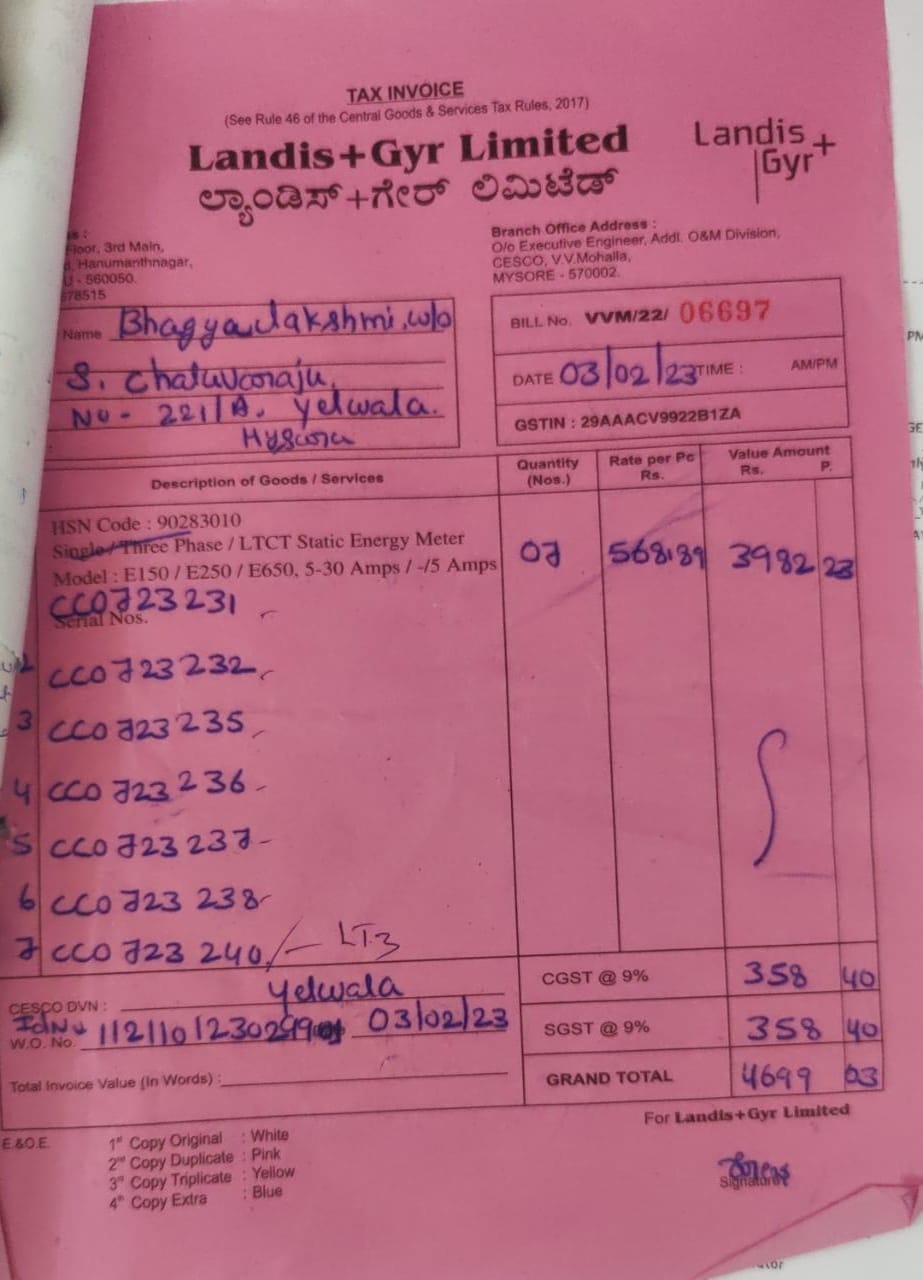 TAX INVOICE
(See Rule 46 of the Central Goods & Services Tax Rules, 2017)
Landis+Gyr Limited
ಲ್ಯಾಂಡಿಸ್+ಗೇರ್ ಲಿಮಿಟೆಡ್
Landis
Gyr+
Floor, 3rd Main,
Hanumanthnagar,
- 560050.
578515
Branch Office Address :
O/o Executive Engineer, Addl. O&M Division,
CESCO, V.V.Mohalla,
MYSORE - 570002.
Name Bhagyalakshmi, w/o
S.
No - 221/A. Yelwala.
BILL No. VVM/22/ 06697
DATE 03/02/23 TIME : AM/PM
GSTIN : 29AAACV9922B1ZA
Description of Goods / Services Quantity (Nos.) Rate per Pc Rs. Value Amount Rs. P.
HSN Code : 90283010
Single / Three Phase / LTCT Static Energy Meter
Model : E150 / E250 / E650, 5-30 Amps / -/5 Amps 07 568.89 3982 23
CC0723231
Serial Nos.
2 CC0723232
3 CC0723235
4 CC0723236
5 CC0723237
6 CC0723238
7 CC0723240/- LT3
CESCO DVN : Yelwala
W.O. No. 03/02/23
Total Invoice Value (In Words) :
CGST @ 9% 358 40
SGST @ 9% 358 40
GRAND TOTAL 4699 03
For Landis+Gyr Limited
E.&O.E.
1st Copy Original : White
2nd Copy Duplicate : Pink
3rd Copy Triplicate : Yellow
4th Copy Extra : Blue
Signature